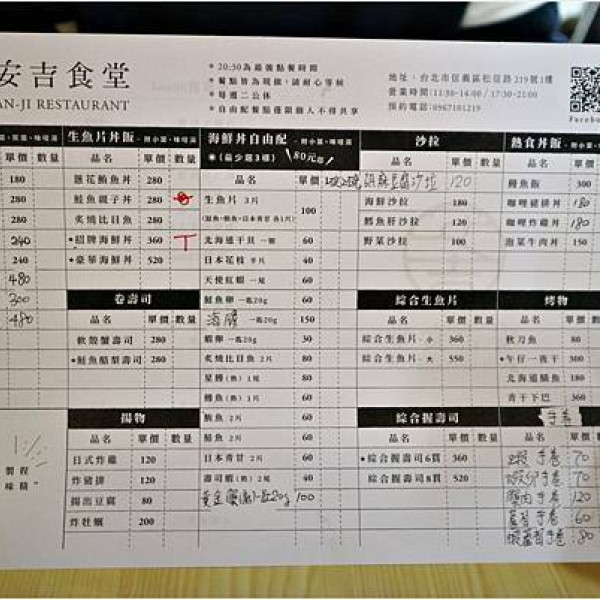 安吉食堂
AN-JI RESTAURANT
＊20:30為最後點餐時間
＊餐點皆為現做，請耐心等候
＊每週二公休
＊自由配餐點僅限個人不得共享
地址：台北市信義區松信路219號1樓
營業時間:11:30-14:00 / 17:30-21:00
預約電話:0967101219
單價 數量
180
280
280
240
240
480
300
480
生魚片丼飯 - 附小菜、味噌湯
品名 單價 數量
蔥花鮪魚丼 280
鮭魚親子丼 280
炙燒比目魚 280
＊招牌海鮮丼 360
＊豪華海鮮丼 520
卷壽司
品名 單價 數量
軟殼蟹壽司 280
＊鮭魚酪梨壽司 280
揚物
品名 單價 數量
日式炸雞 120
炸豬排 120
揚出豆腐 80
炸牡蠣 200
海鮮丼自由配 - 附小菜、味噌湯
(最少選3樣) 80元起
品名 單價
生魚片 3片 100
北海道干貝 一顆 60
日本花枝 半片 40
天使紅蝦 一尾 60
鮭魚卵 一匙20g 60
海膽 一匙20g 150
蝦卵 一匙20g 30
炙燒比目魚 2片 80
星鰻(熟) 1尾 80
鯛魚(熟) 1片 60
鮪魚 2片 60
鮭魚 2片 60
日本青甘 2片 60
壽司蝦(熟) 2尾 40
100
沙拉
胡麻豆腐沙拉 120
海鮮沙拉 180
鱈魚肝沙拉 120
野菜沙拉 100
綜合生魚片
品名 單價 數量
綜合生魚片 - 小 360
綜合生魚片 - 大 550
綜合握壽司
品名 單價 數量
＊綜合握壽司6貫 360
綜合握壽司8貫 520
熱食丼飯 - 附小菜、味噌湯
品名 單價
鰻魚飯 300
咖哩豬排丼 180
咖哩炸雞丼 180
泡菜牛肉丼 150
烤物
品名 單價 數
秋刀魚 80
＊午仔一夜干 300
北海道鯖魚 180
青干下巴 360
手卷
品名 單價 數量
手卷 70
手卷 70
手卷 120
蘆筍手卷 60
蝦蘆筍手卷 80